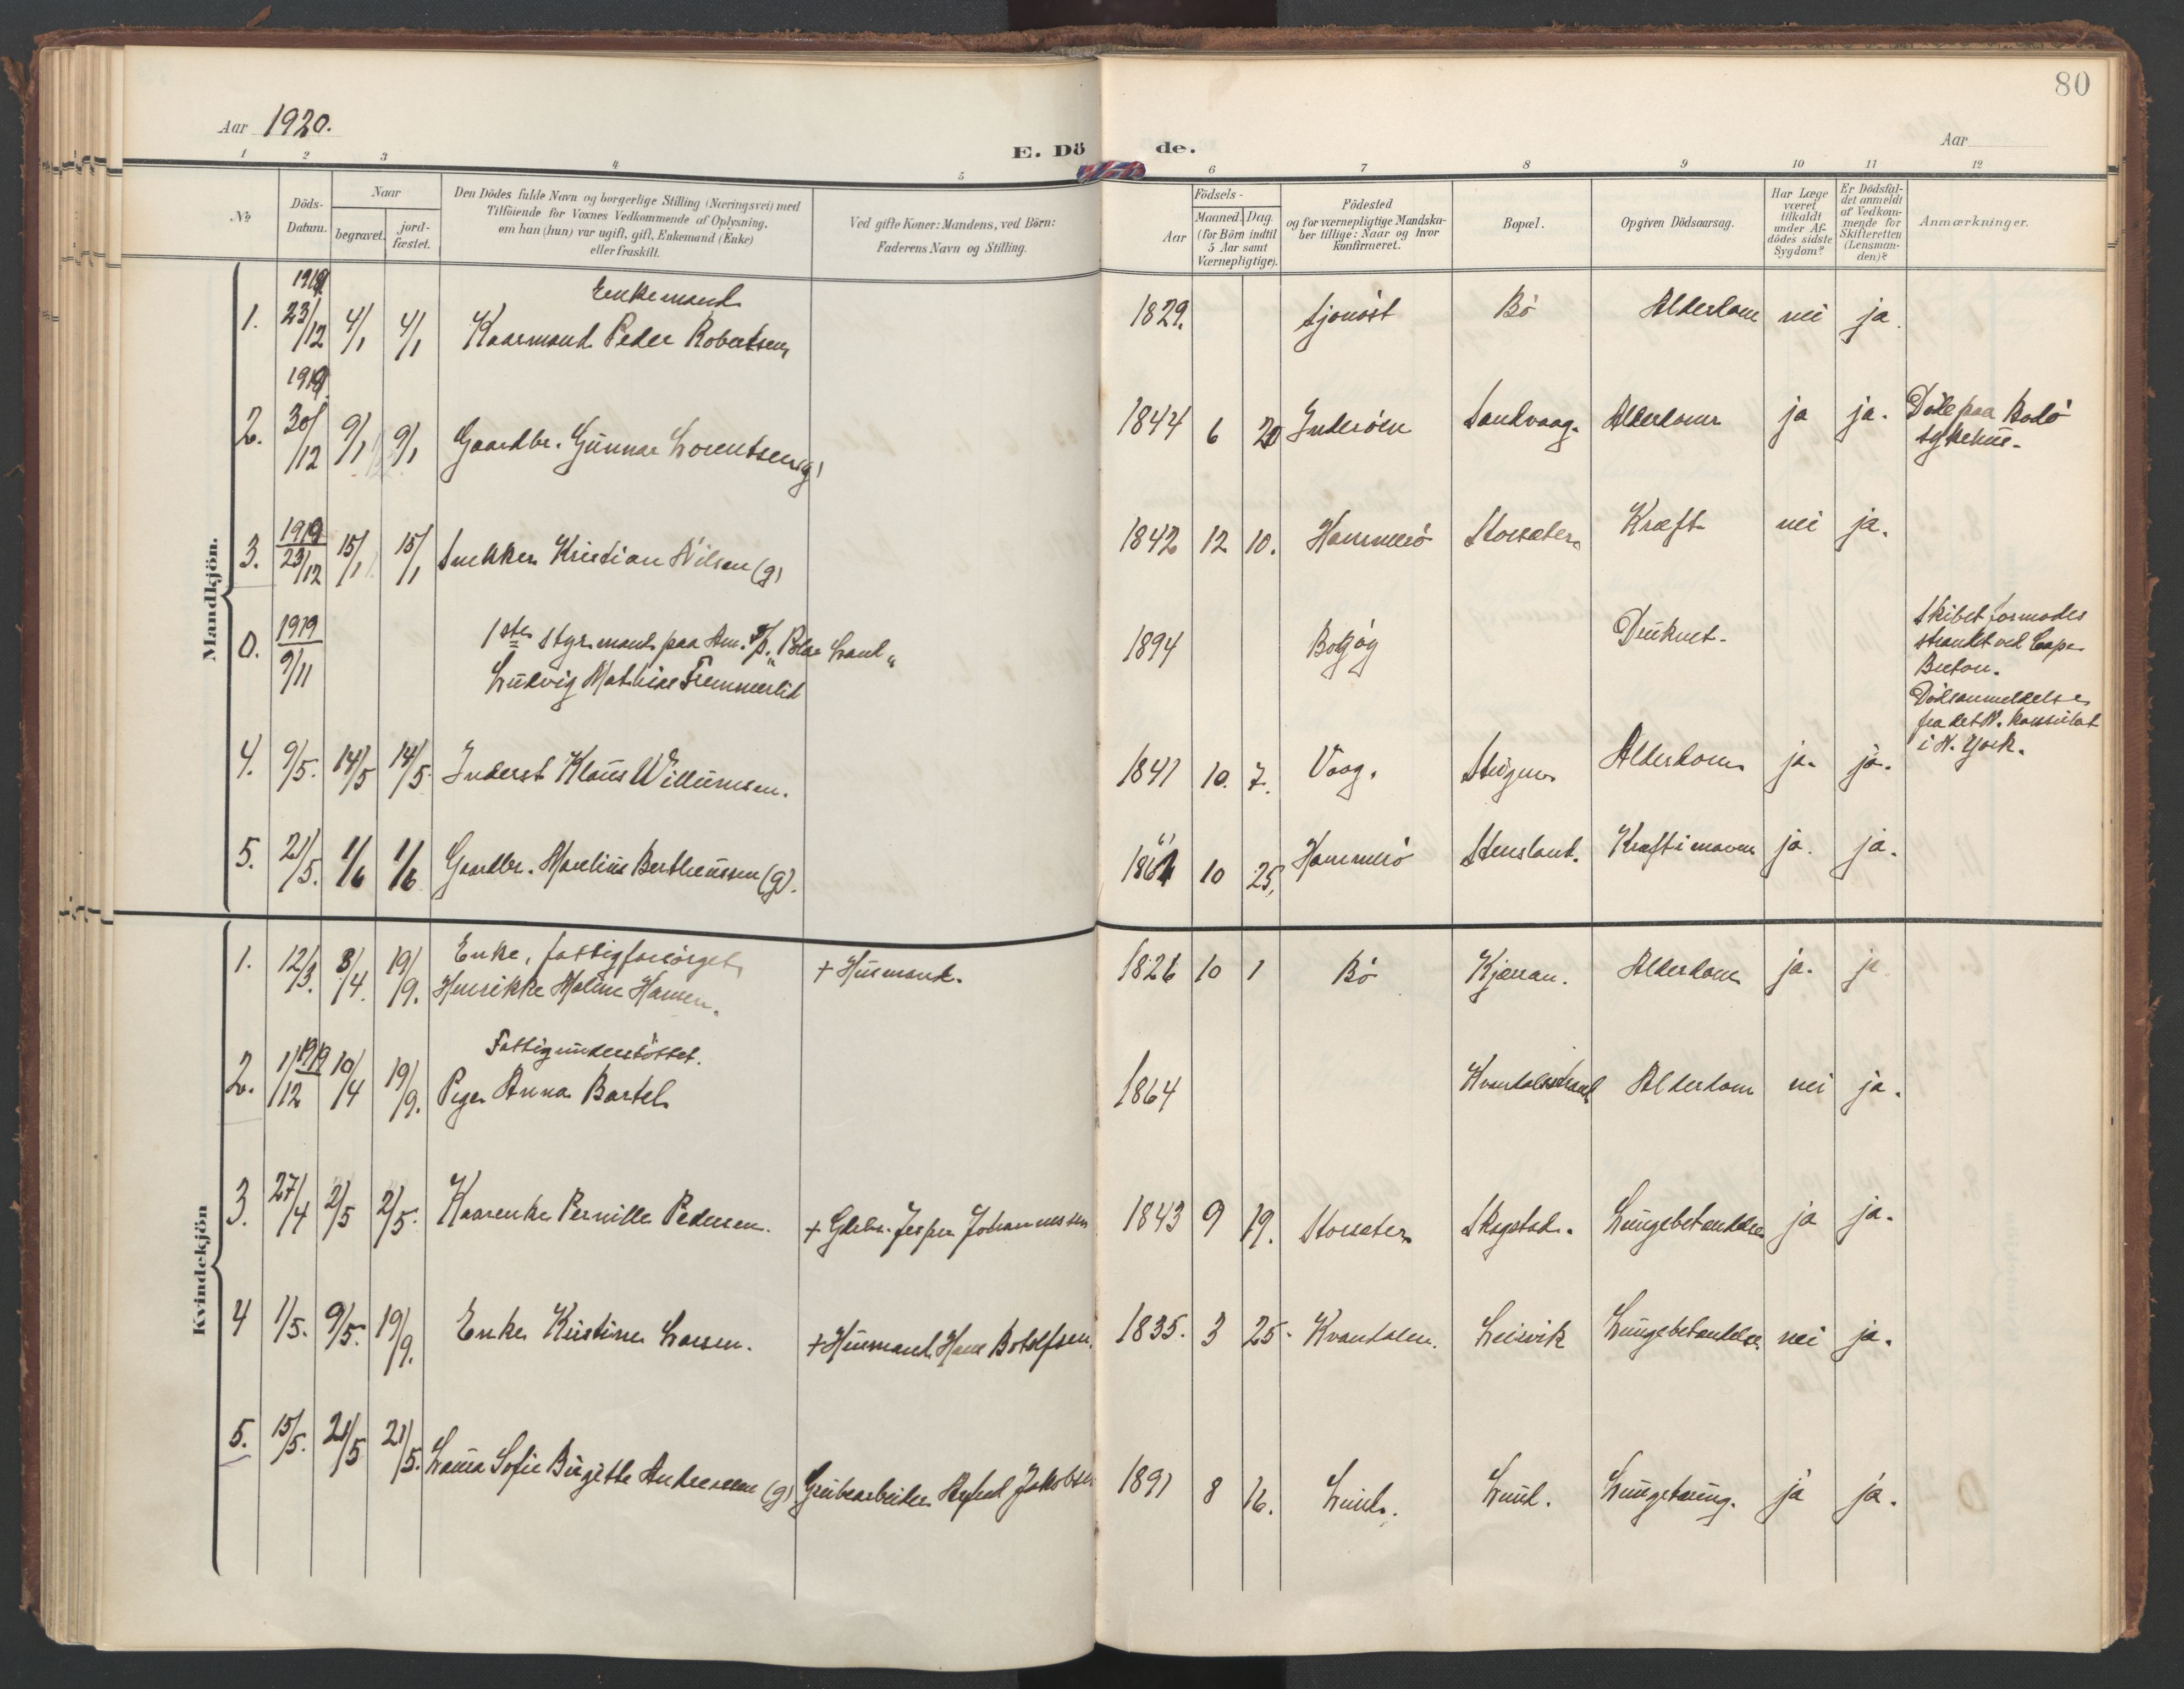 80
Aar 1920.
Aar
E. Dö de.
1 2 3 4 5 6 7 8 9 10 11 12
№
Döds-
Datum.
Naar
begravet.
jord-
fæstet.
Den Dödes fulde Navn og borgerlige Stilling (Næringsvei) med
Tilföiende for Voxnes Vedkommende af Oplysning,
om han (hun) var ugift, gift, Enkemand (Enke)
eller fraskilt.
Ved gifte Koner: Mandens, ved Börn:
Faderens Navn og Stilling.
Födsels-
Aar
Maaned. Dag.
(for Börn indtil
5 Aar samt
Værnepligtige).
Födested
og for værnepligtige Mandska-
ber tillige: Naar og hvor
konfirmeret.
Bopæl.
Opgiven Dödsaarsag.
Har Læge
været
tilkaldt
under Af-
dödes sidste
Sygdom?
Er Dödsfal-
det anmeldt
af Vedkom-
mende for
Skifteretten
(Lensman-
den)?
Anmærkninger.
Mandkjön.
1919 Enkemand
1. 23/12 4/1 4/1 Kaarmand Peder Robertsen 1829. Sjonöst Bö Alderdom nei ja.
1919
2. 30/12 9/1 9/1 Gaardbr. Gunnar Lorentsen (g) 1844 6 20 Inderöen Sandvaag. Alderdom ja ja. Döde paa Bodö
sykehus.
1919
3. 23/12 15/1 15/1 Snekker Kristian Nilsen (g) 1842 12 10. Hammerö Storsæter Kræft nei ja.
1919
0. 9/11 1ste Styrmand paa Am. S/S. "Polar Land"
Ludvig Mathias Tremmerlid 1894 Druknet. Skibet formodes
strandet ved Cape
Breton.
Dödsanmeldelse
fra det N. konsulat
i N. York.
4. 9/5. 14/5 14/5. Inderst Klaus Willumsen. 1841 10. 7. Vaag. Steigen. Alderdom ja. ja.
5. 21/5. 1/6 1/6 Gaardbr. Marelius Bertheussen (g). 1861 10 25. Hammerö Stensland. Kræft i maven ja. ja.
Kvindekjön
Enke, fattigforsörget,
1. 12/3. 8/4. 19/9. Henrikke Maline Hansen. + Husmand. 1826 10 1 Bö Kjærran. Alderdom ja. ja
1919 Fattigunderstöttet.
2. 1/12 10/4 19/9. Pige Anna Bartel 1864 Kvandalsstrand Alderdom nei ja.
3. 27/4 2/5 2/5. Kaarenke Pernille Pedersen. + Gbr. Jesper Johannessen 1843 9 19. Storsæter Skogstad. Lungebetændelse ja ja.
4 1/5. 9/5. 19/9. Enke Kristine Larsen. + Husmand Hans Botolfsen. 1835. 3 25. Kvandalen. Leirvik Lungebetændelse. nei ja.
5. 15/5. 21/5 21/5. Laura Sofie Birgitte Andreassen (g) Grubearbeider Jakobsen 1891 8 16. Lund. Lund. Lungetæring. ja ja.